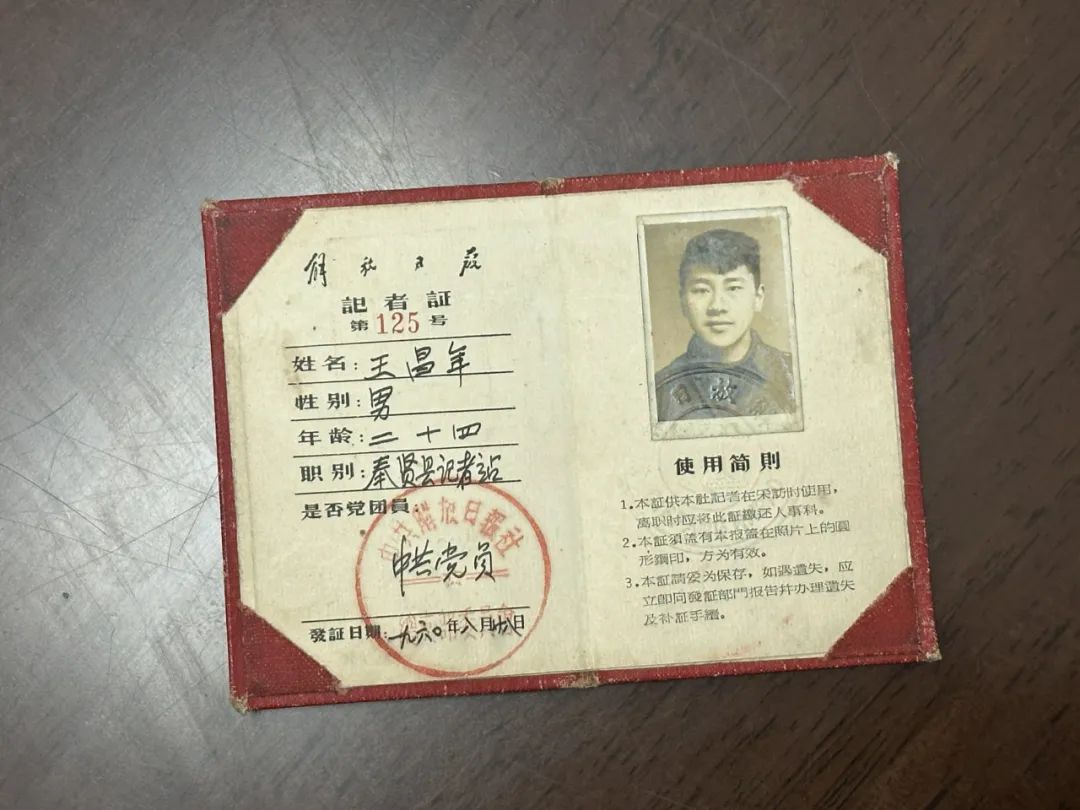 解放日报
記者証
第125号
姓名：王昌年
性別：男
年龄：二十四
职別：奉贤县记者站
是否党团員：
中共解放日报社
中共党员
發証日期：一九六〇年八月十八日
日放
使用简則
1.本証供本社記者在采訪时使用，
离职时应将此証繳还人事科。
2.本証須盖有本报盖在照片上的圆
形鋼印，方为有效。
3.本証請妥为保存，如遇遺失，应
立即向發証部門报告幷办理遺失
及补証手續。